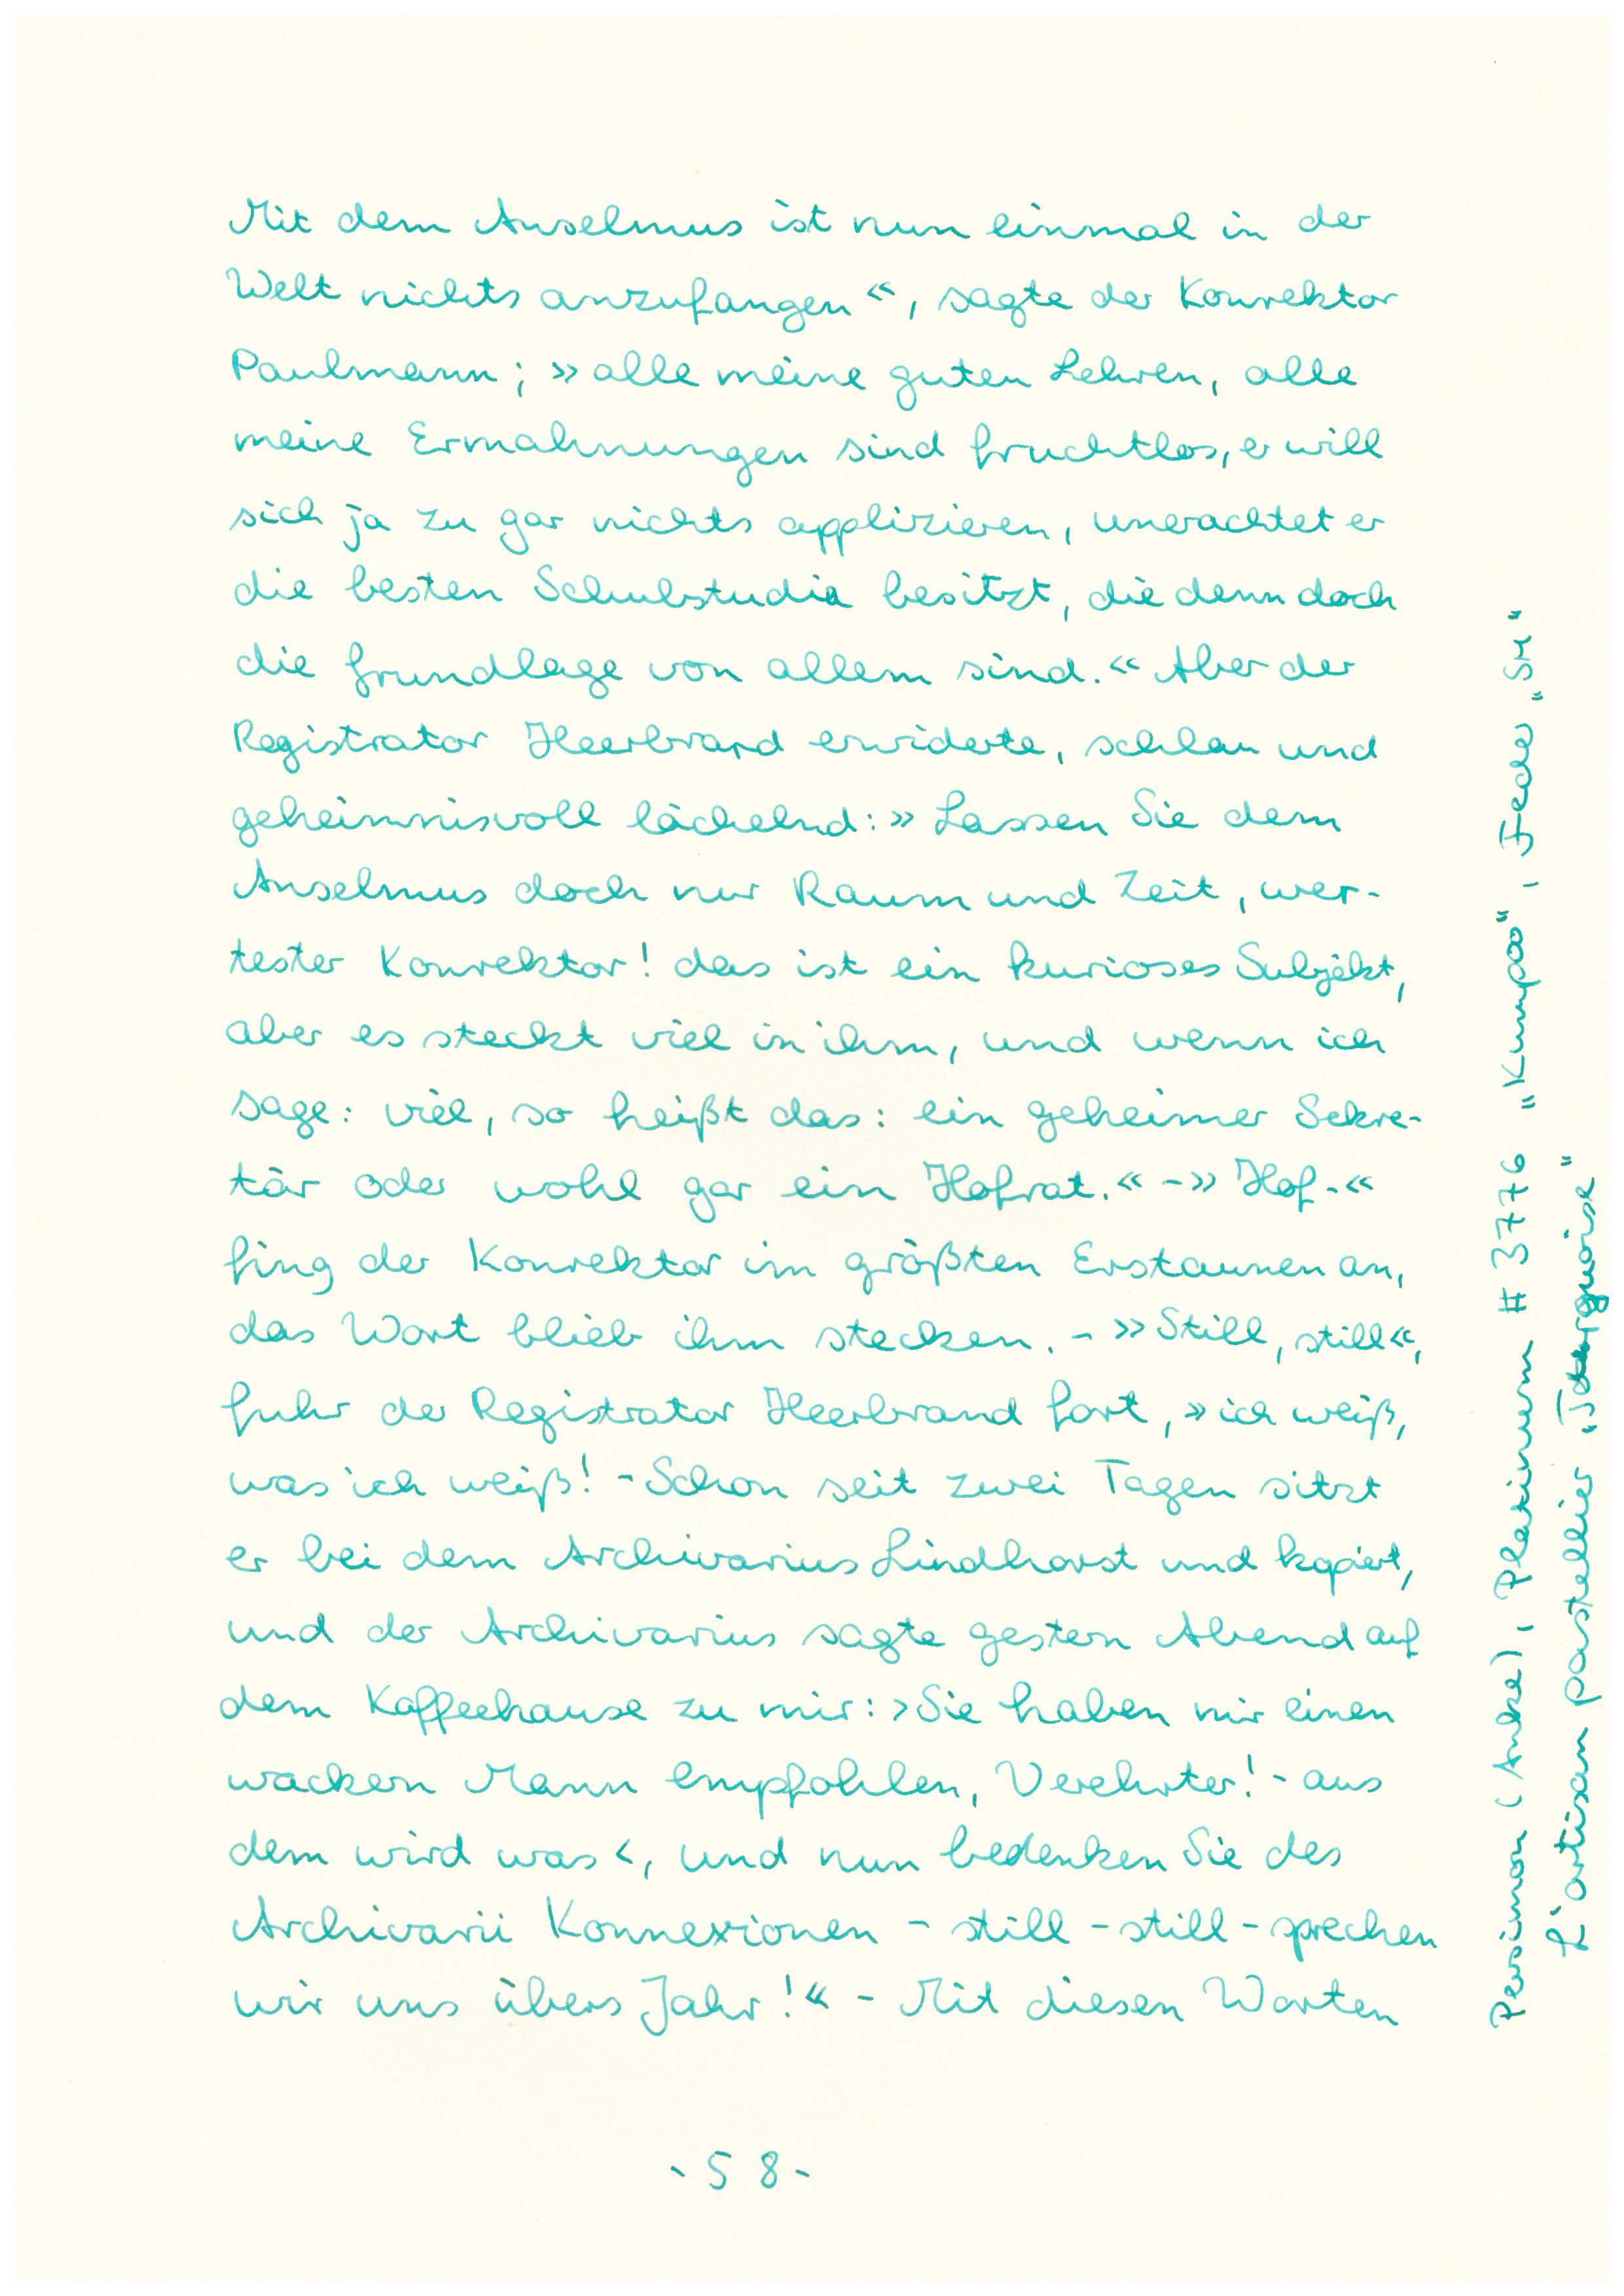 Mit dem Anselmus ist nun einmal in der
Welt nichts anzufangen«, sagte der Konrektor
Paulmann; »alle meine guten Lehren, alle
meine Ermahnungen sind fruchtlos, er will
sich ja zu gar nichts applizieren, unerachtet er
die besten Schulstudia besitzt, die denn doch
die Grundlage von allem sind.« Aber der
Registrator Heerbrand erwiderte, schlau und
geheimnisvoll lächelnd: »Lassen Sie dem
Anselmus doch nur Raum und Zeit, wer-
tester Konrektor! das ist ein kurioses Subjekt,
aber es steckt viel in ihm, und wenn ich
sage: viel, so heißt das: ein geheimer Sekre-
tär oder wohl gar ein Hofrat.« -» Hof-«
fing der Konrektor im größten Erstaunen an,
das Wort blieb ihm stecken. - »Still, still«,
fuhr der Registrator Heerbrand fort, »ich weiß,
was ich weiß! - Schon seit zwei Tagen sitzt
er bei dem Archivarius Lindhorst und kopiert,
und der Archivarius sagte gestern Abend auf
dem Kaffeehause zu mir: ›Sie haben mir einen
wackern Mann empfohlen, Verehrter! - aus
dem wird was‹, und nun bedenken Sie des
Archivarii Konnexionen - still - still - sprechen
wir uns übers Jahr!« - Mit diesen Worten
- 58 -
Persimon (Anke), Platinum # 3776 „Kumpoo", Feder „SM"
L'artisan pastellier „Tourquoise"